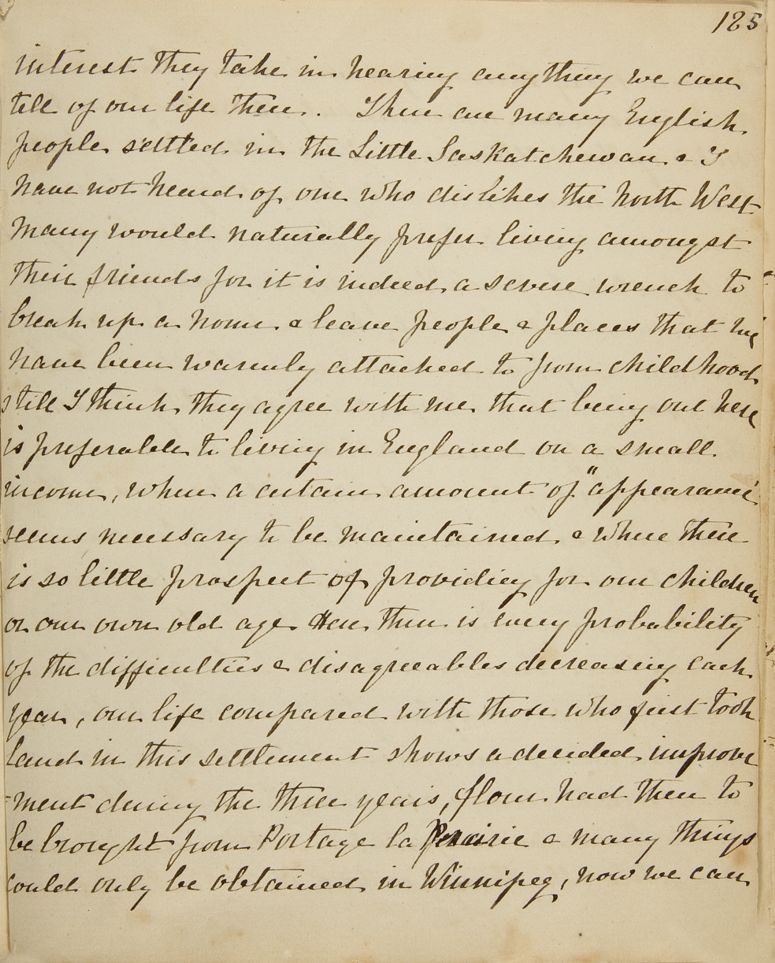 125
interest they take in hearing anything we can
tell of our life there. There are many English
people settled in the Little Saskatchewan & I
have not heard of one who dislikes the North West
Many would naturally prefer living amongst
their friends for it is indeed a severe wrench to
break up a home & leave people & places that we
have been warmly attached to from childhood
still I think they agree with me that being out here
is preferable to living in England on a small
income, when a certain amount of "appearance
seems necessary to be maintained & where there
is so little prospect of providing for our children
or our own old age. Here there is every probability
of the difficulties & disagreeables decreasing each
year, our life compared with those who first took
land in this settlement shows a decided improve
-ment during the three years, flour had then to
be brought from Portage la Prairie & many things
could only be obtained in Winnipeg, now we can